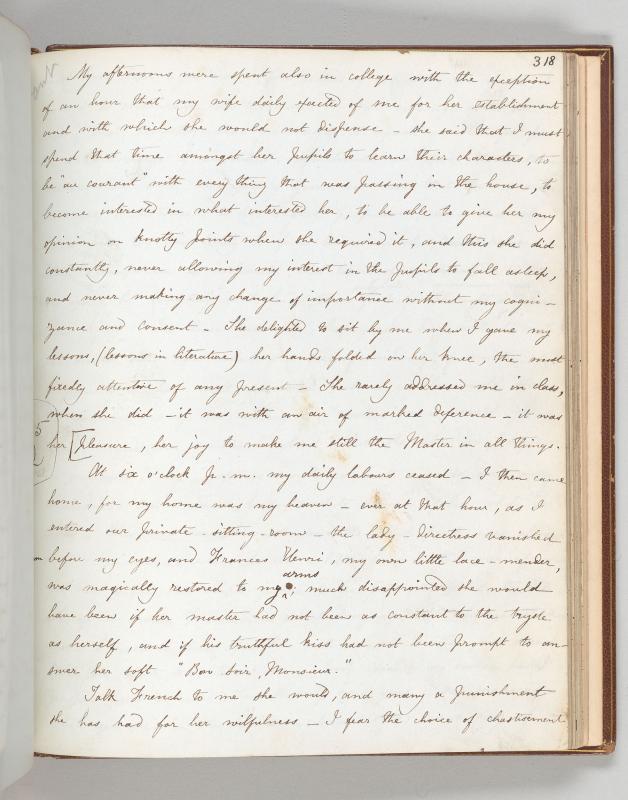 318
My afternoons were spent also in college with the exception
of an hour that my wife daily exacted of me for her establishment
and with which she would not dispense – she said that I must
spend that time amongst her pupils to learn their characters, to
be "au courant" with every thing that was passing in the house, to
become interested in what interested her, to be able to give her my
opinion on knotty points when she required it, and this she did
constantly, never allowing my interest in the pupils to fall asleep,
and never making any change of importance without my cogni-
zance and consent – She delighted to sit by me when I gave my
lessons, (lessons in literature) her hands folded on her knee, the most
fixedly attentive of any present – She rarely addressed me in class,
when she did – it was with an air of marked deference – it was
her [pleasure, her joy to make me still the Master in all things.
At six o'clock p.m. my daily labours ceased – I then came
home, for my home was my heaven – ever at that hour, as I
entered our private – sitting-room – the lady – directress vanished
before my eyes, and Frances Henri, my own little lace-mender,
was magically restored to my arms; much disappointed she would
have been if her master had not been as constant to the tryste
as herself, and if his truthful kiss had not been prompt to an-
swer her soft "Bon soir, Monsieur."
Talk French to me she would, and many a punishment
she has had for her wilfulness – I fear the choice of chastisement